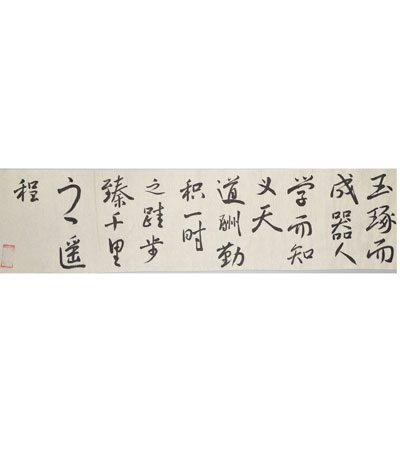 玉琢而
成器人
学而知
义天
道酬勤
积一时
之跬步
臻千里
之遥
程